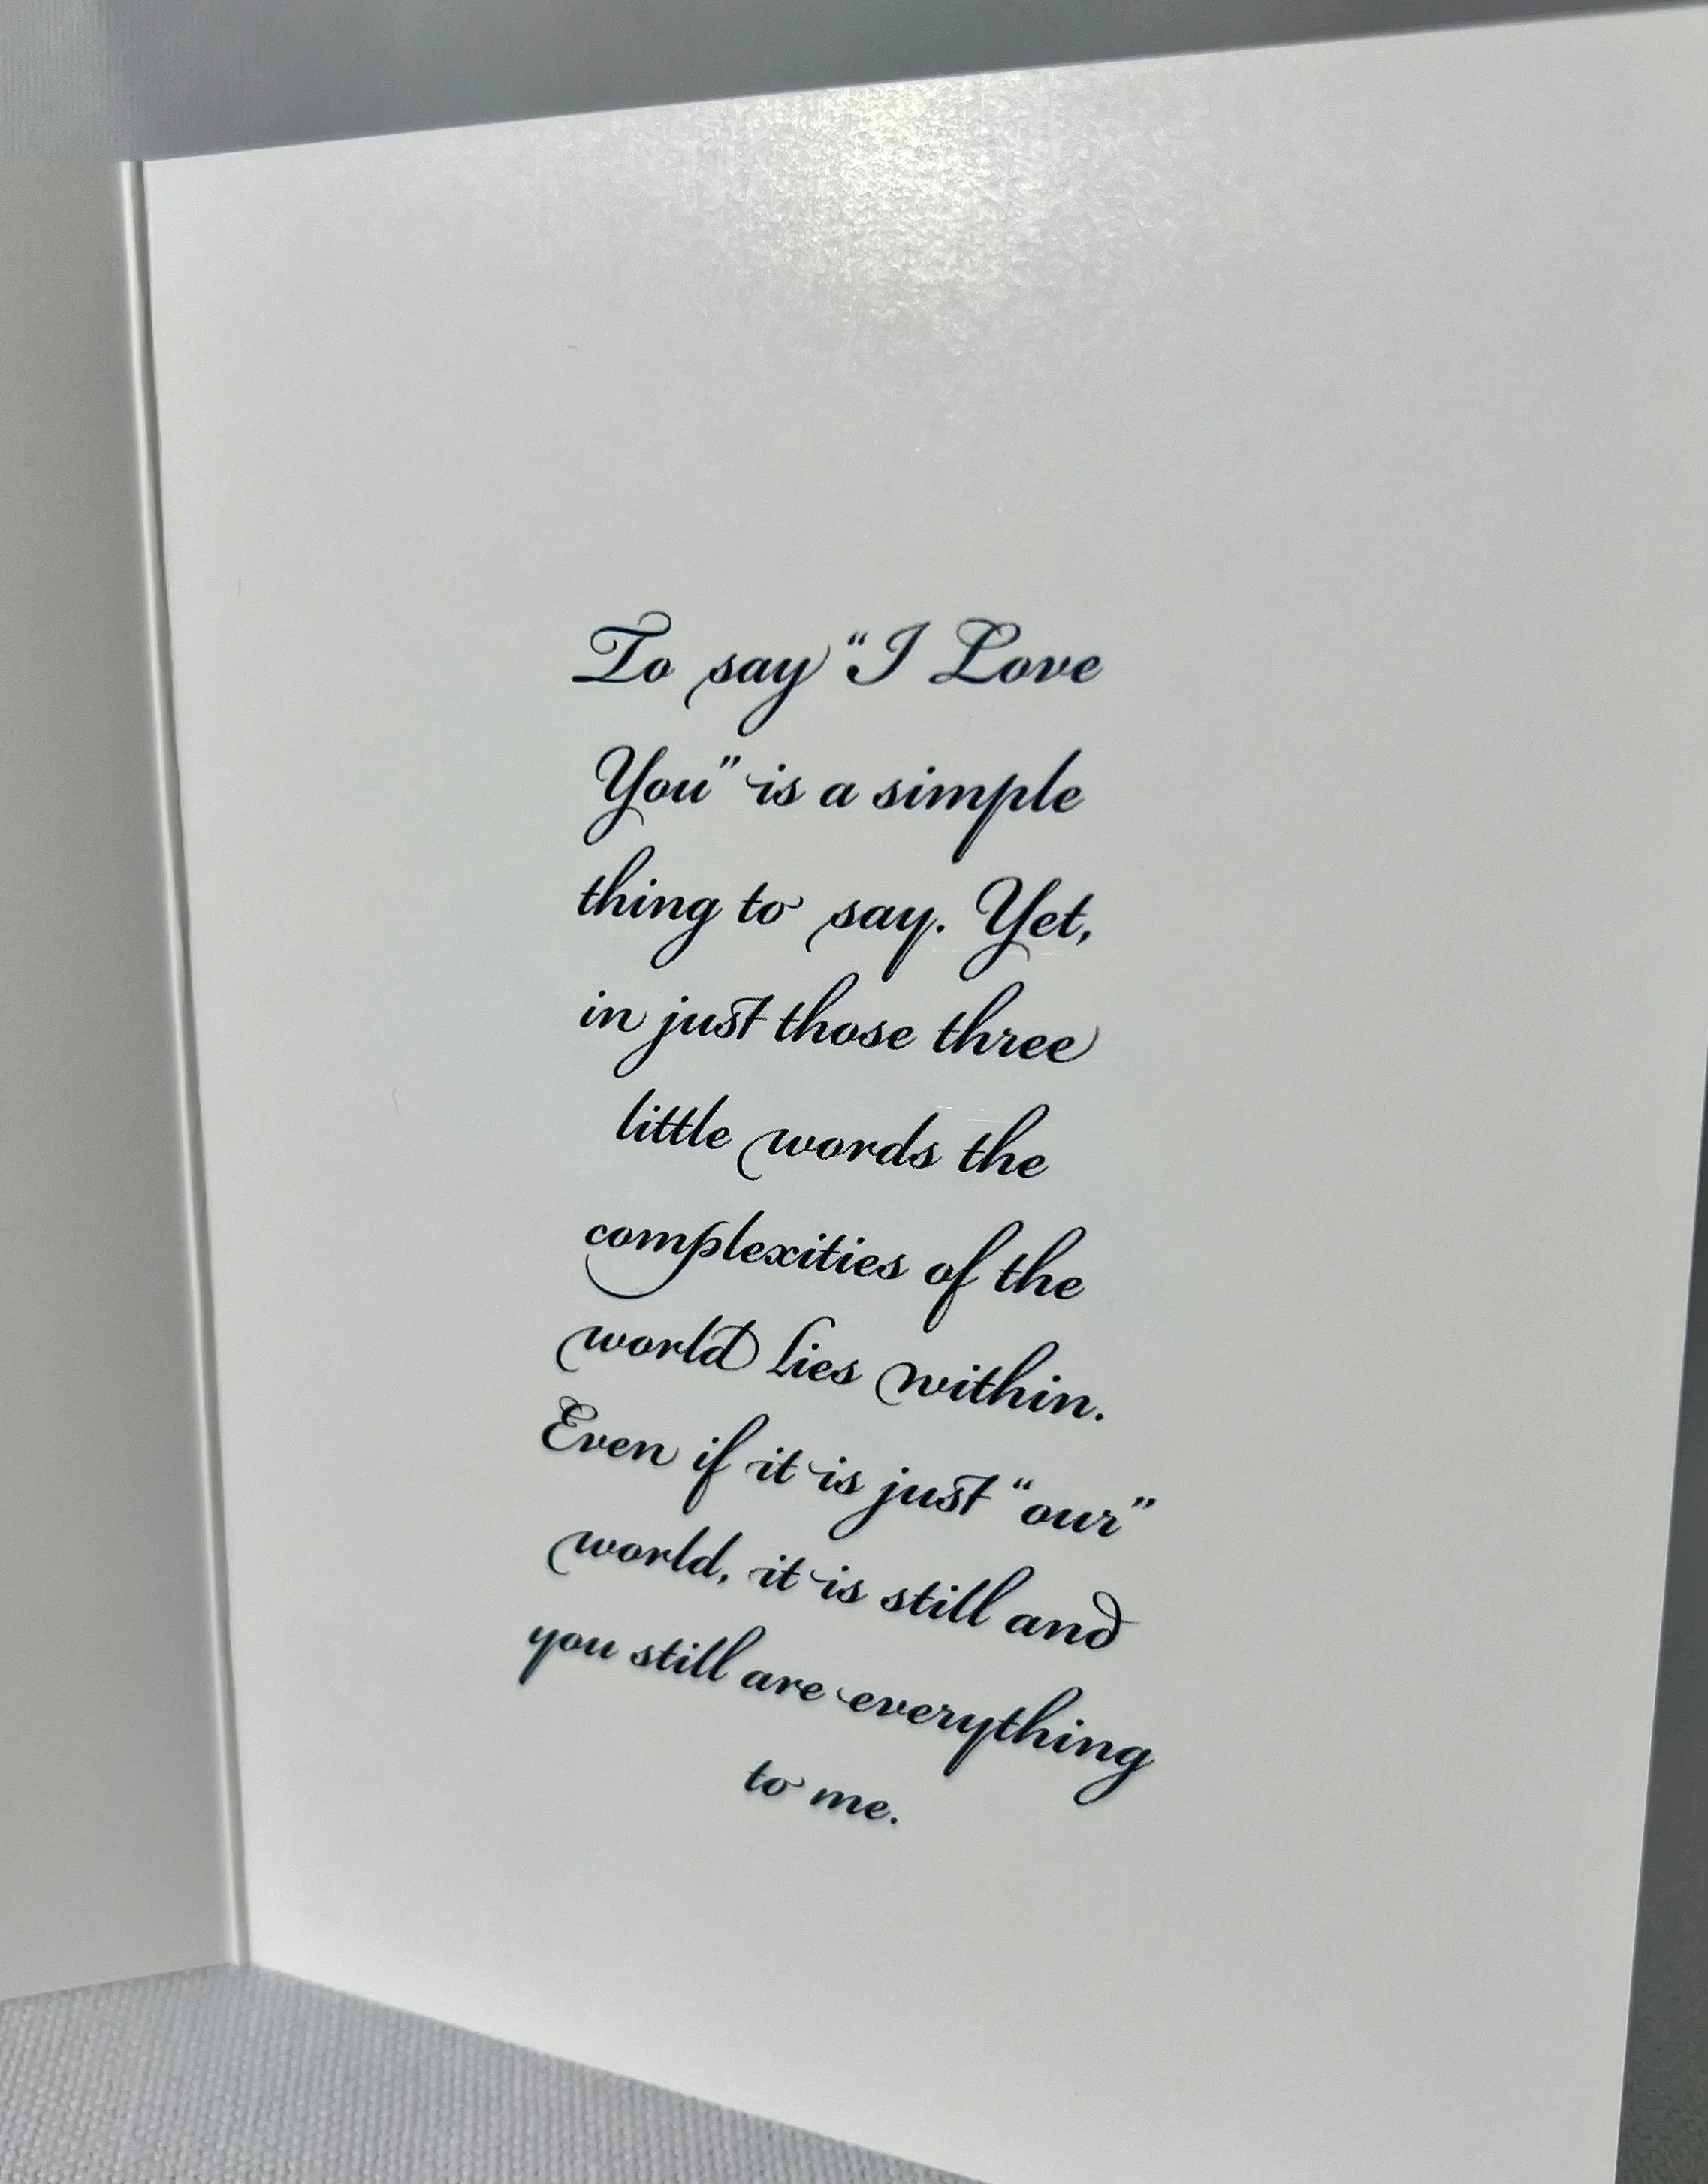 To say “I Love
You” is a simple
thing to say. Yet,
in just those three
little words the
complexities of the
world lies within.
Even if it is just “our”
world, it is still and
you still are everything
to me.